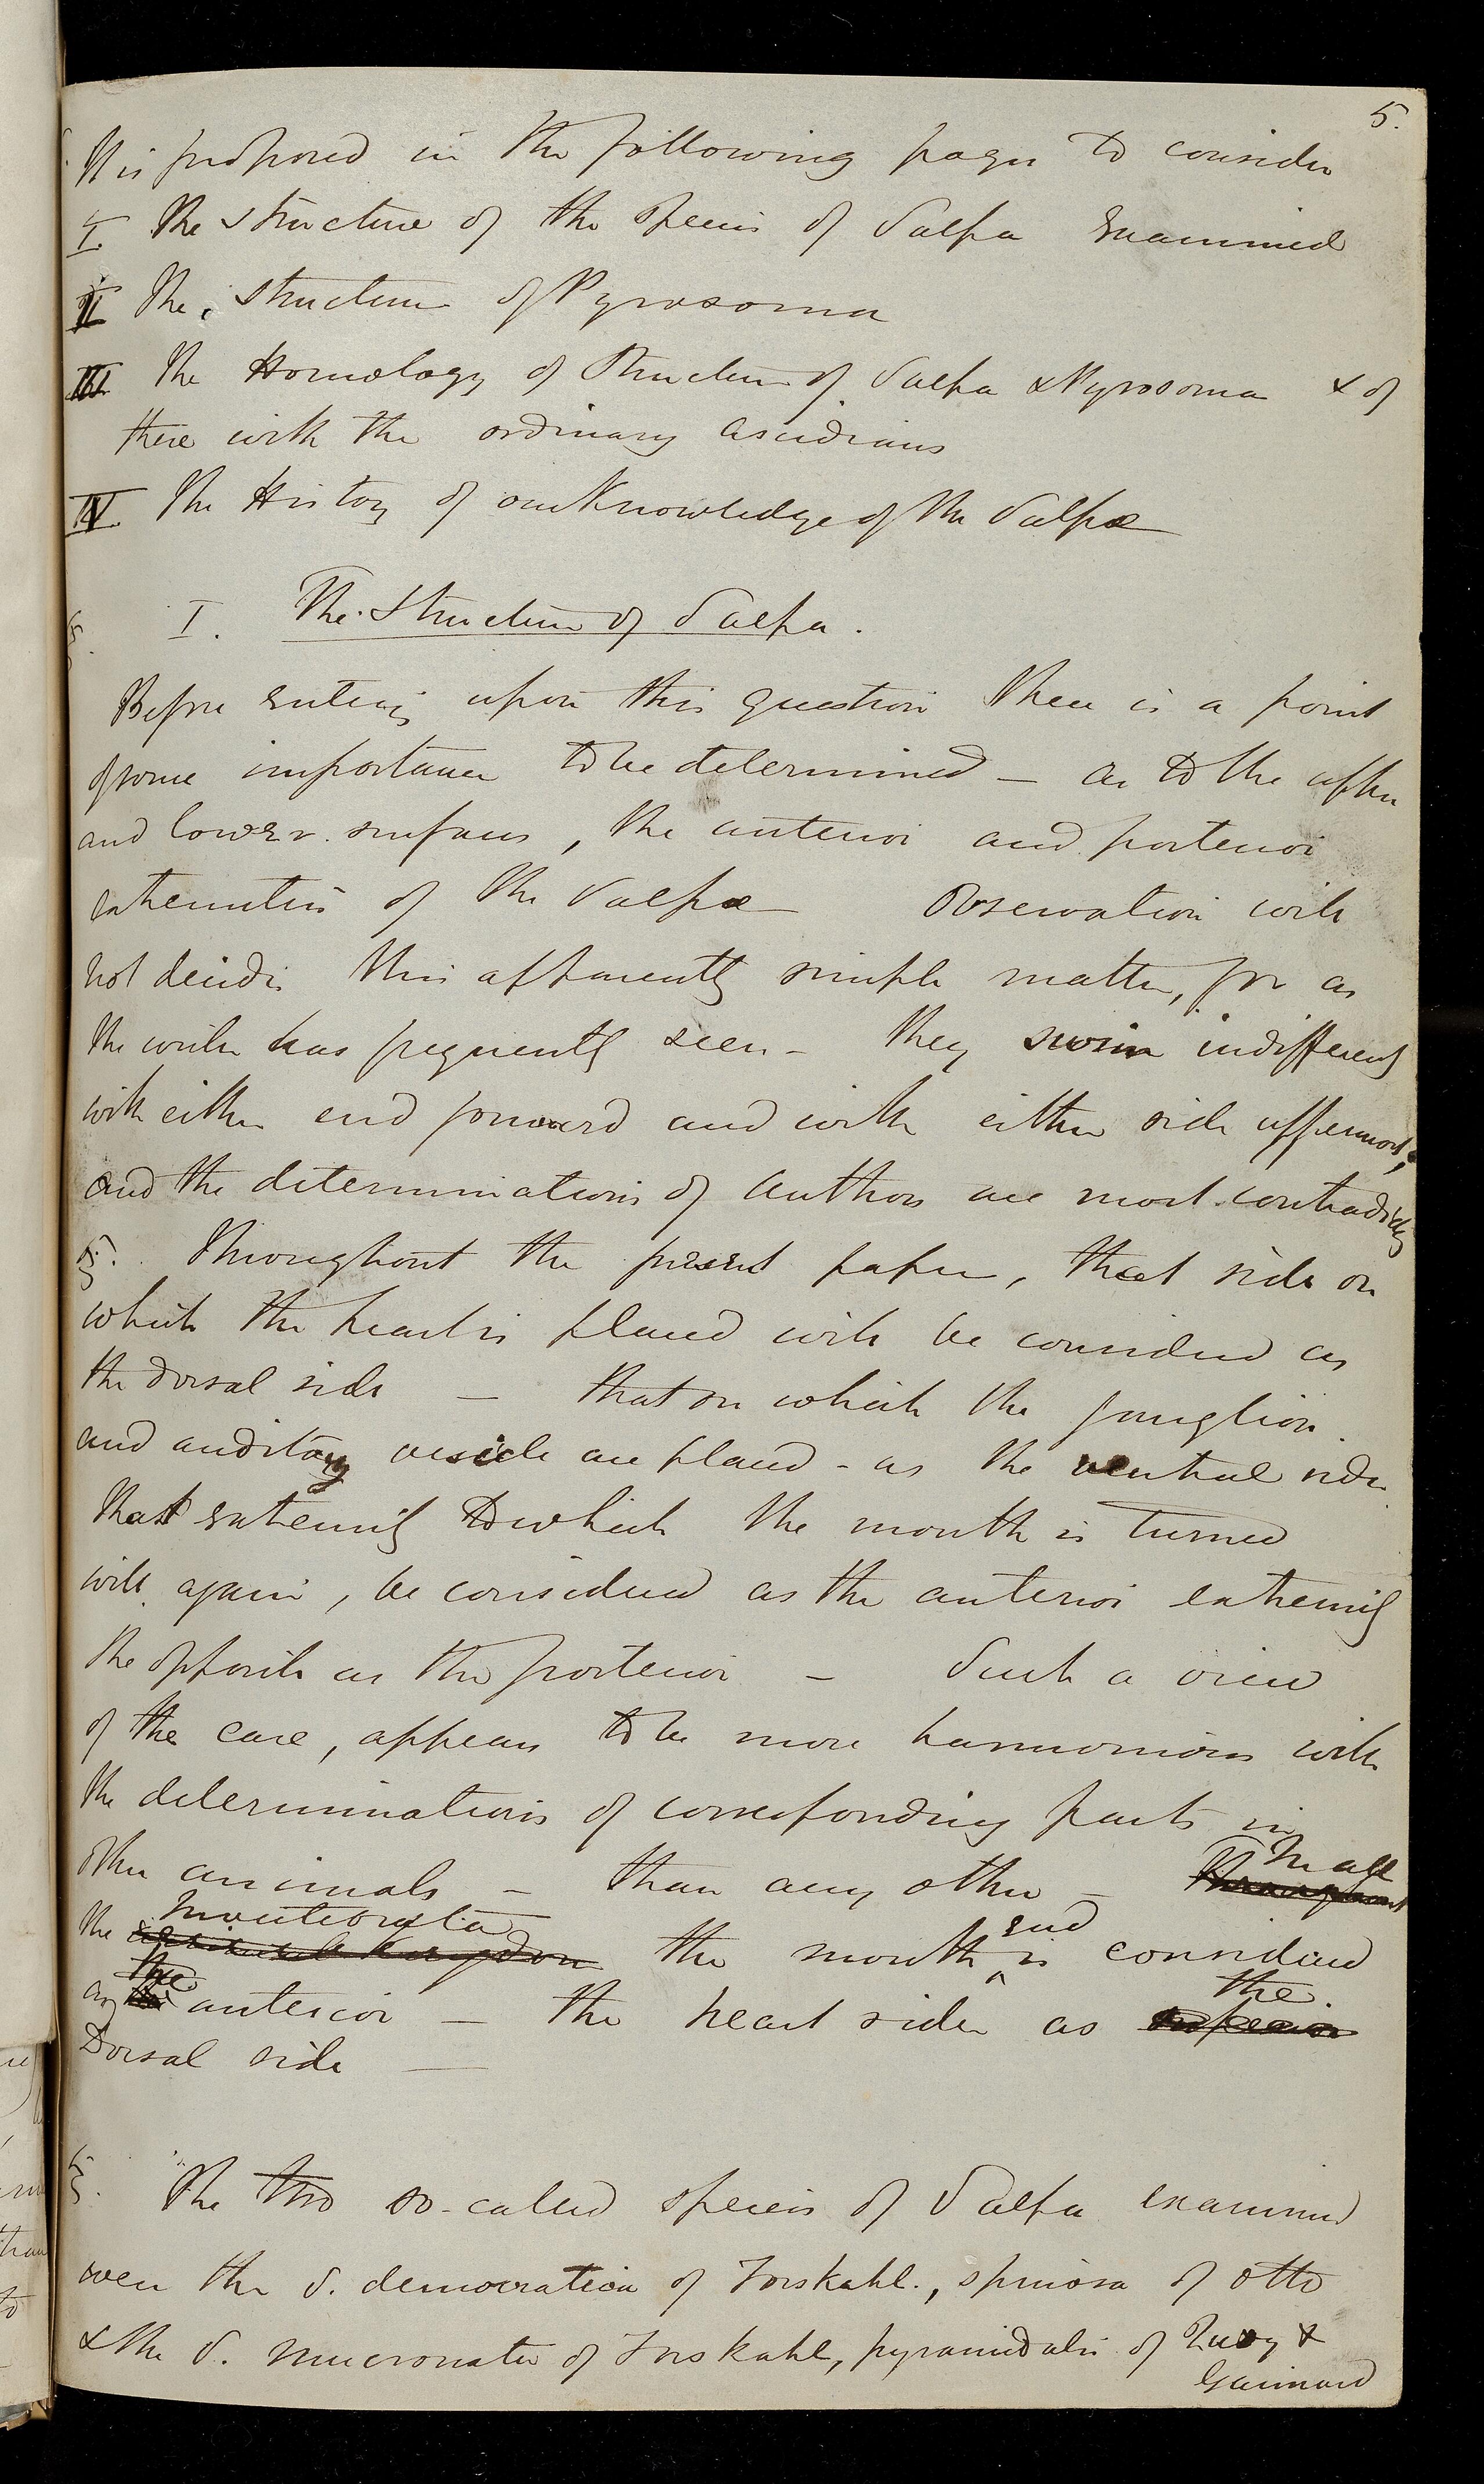 5.
It is proposed in the following pages to consider
I. The structure of the species of Salpa examined
II The structure of Pyrosoma
III The Homology of Structure of Salpa & Pyrosoma & of
these with the ordinary ascidians
IV. The History of our Knowledge of the Salpæ
I. The Structure of Salpa.
Before entering upon this question there is a point
of some importance to be determined – as to the upper
and lower surfaces, the anterior and posterior
extremities of the Salpæ Observation will
not decide this apparently simple matter, for as
the writer has frequently seen – they swim indifferently
with either end forward and with either side uppermost,
and the determinations of authors are most contradictory
§. Throughout the present paper, that side on
which the heart is placed will be considered as
the dorsal side – that on which the ganglion
and auditory vesicle are placed – as the ventral side
That extremity to which the mouth is turned
will again, be considered as the anterior extremity
the opposite as the posterior – Such a view
of the case, appears to be more harmonious with
the determinations of corresponding parts in
other animals – than any other – Throughout In all
the Invertebrata the mouth end is considered
as the anterior – the heart side as the
Dorsal side –
§. The two so-called species of Salpa examined
were the S. democratica of Forskahl., spinosa of Otto
& the S. mucronata of Forskahl, pyramidalis of Quoy &
Gaimard